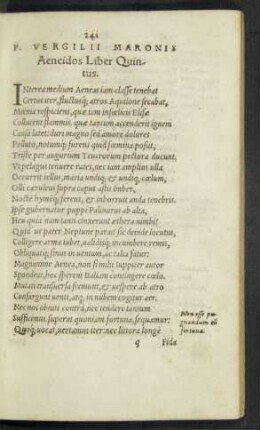 241
P. VERGILII MARONIS
Aeneidos Liber Quin-
tus.
INterea medium Aeneas iam classe tenebat
Certus iter, fluctusq; atros Aquilone secabat,
Moenia respiciens, quae iam infoelicis Elisae
Collucent flammis. quae tantum accenderit ignem
Causa latet: duri magno sed amore dolores
Polluto, notumq; furens quid foemina possit,
Triste per augurium Teucrorum pectora ducunt.
Vt pelagus tenuere rates, nec iam amplius ulla
Occurrit tellus, maria undiq; et undiq; caelum,
Olli caeruleus supra caput astitit imber,
Noctē hyemēq; ferens, & inhorruit unda tenebris.
Ipse gubernator puppi Palinurus ab alta,
Heu quia nam tanti cinxerunt aethera nimbi?
Quid ue pater Neptune paras? sic deinde locutus,
Colligere arma iubet, ualidisq; incumbere remis,
Obliquatq; sinus in uentum, ac talia fatur:
Magnanime Aenea, non si mihi Iuppiter autor
Spondeat, hoc sperem Italiam contingere caelo.
Mutati transuersa fremunt, & uespere ab atro
Consurgunt uenti, atq; in nubem cogitur aer.
Nec nos obniti contrà, nec tendere tantum
Sufficimus. superat quoniam fortuna, sequamur:
Quoq; uocat, uertamus iter. nec littora longè
Non esse pu-
gnandum cū
fortuna.
q Fida